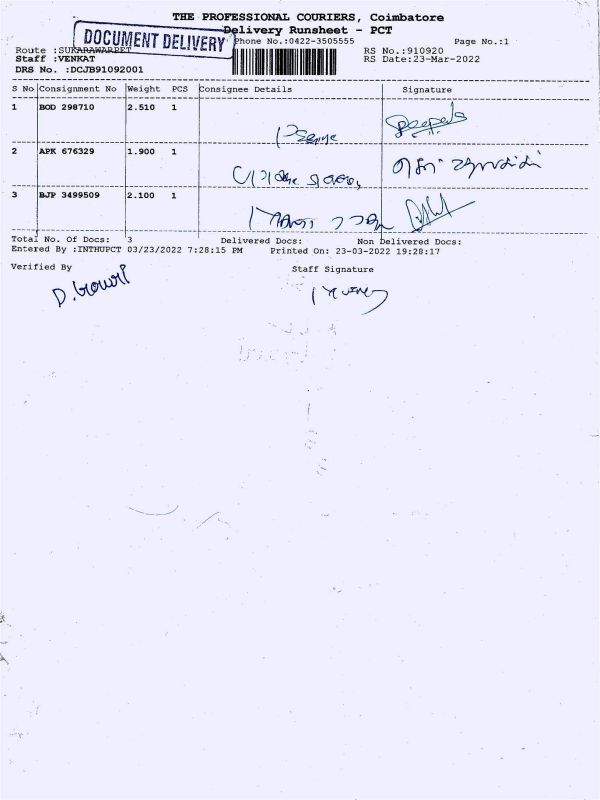 THE PROFESSIONAL COURIERS, Coimbatore
Delivery Runsheet - PCT
DOCUMENT DELIVERY
Phone No.:0422-3505555
Page No.:1
Route :SUKARAWARPET
RS No.:910920
Staff :VENKAT
RS Date:23-Mar-2022
DRS No. :DCJB91092001
S No Consignment No Weight PCS Consignee Details Signature
1 BOD 298710 2.510 1
2 APK 676329 1.900 1
3 BJP 3499509 2.100 1
Total No. Of Docs: 3 Delivered Docs: Non Delivered Docs:
Entered By :INTHUPCT 03/23/2022 7:28:15 PM Printed On: 23-03-2022 19:28:17
Verified By Staff Signature
D. Gowri